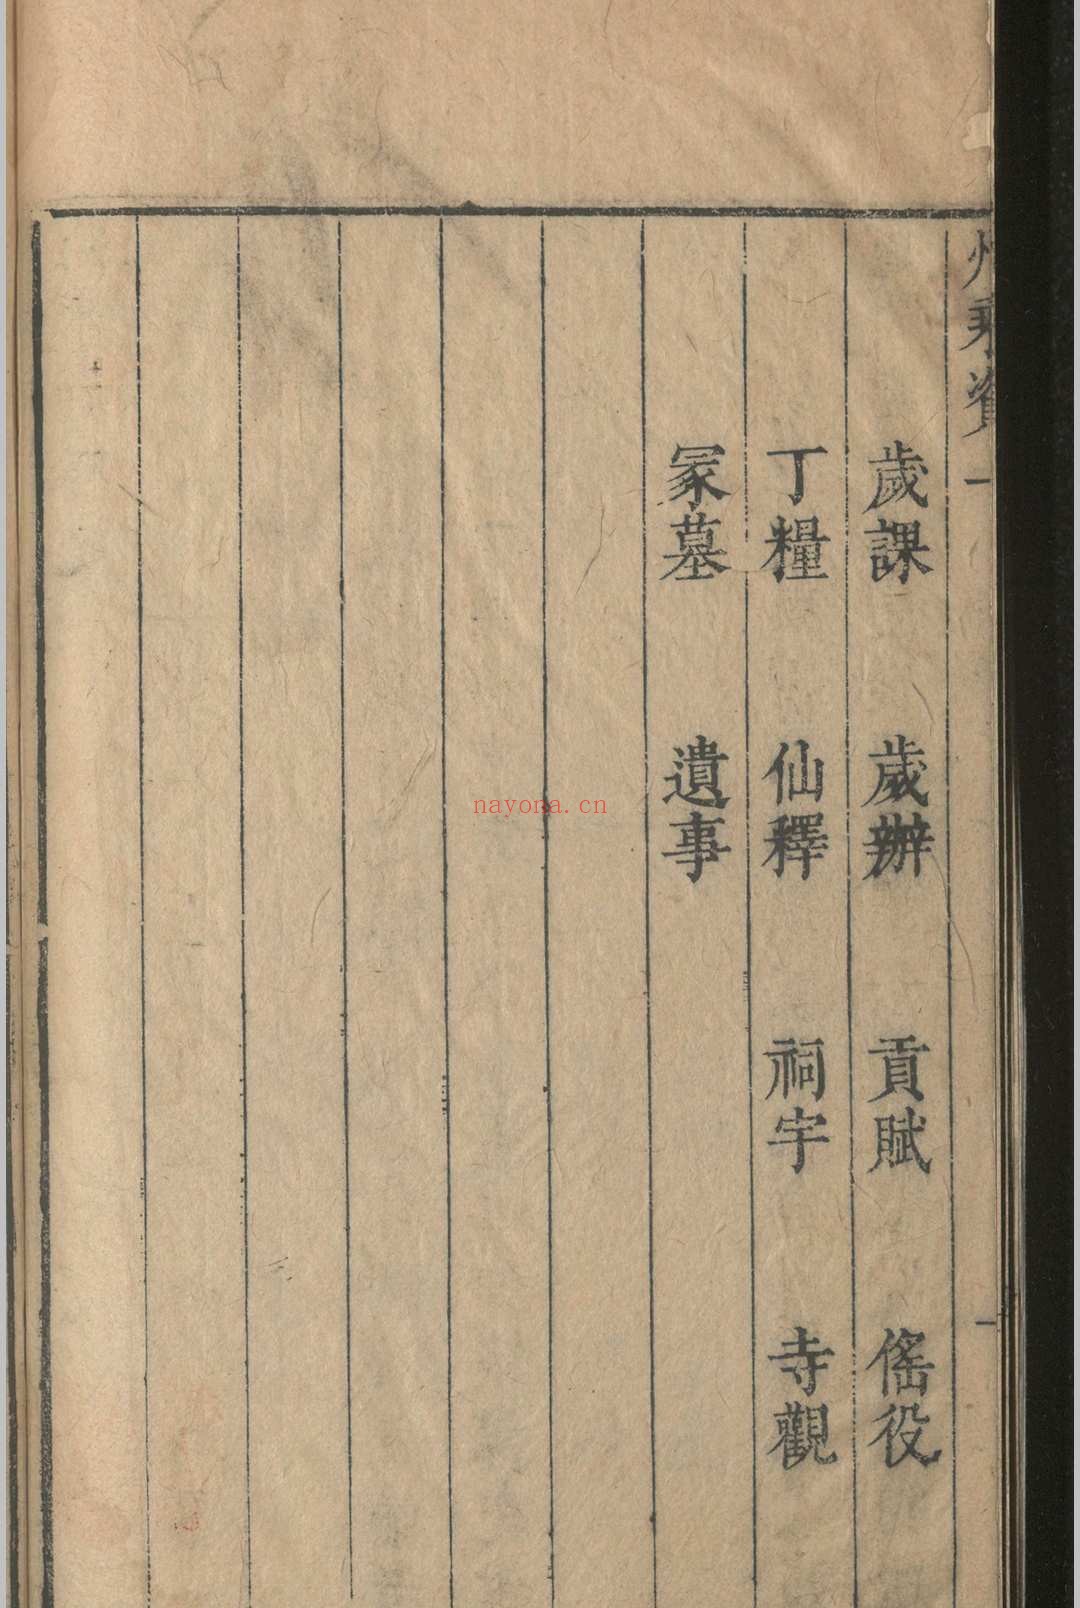 州乘資 一 一
歲課 歲辦 貢賦 徭役
丁糧 仙釋 祠宇 寺觀
冢墓 遺事
nayona.cn